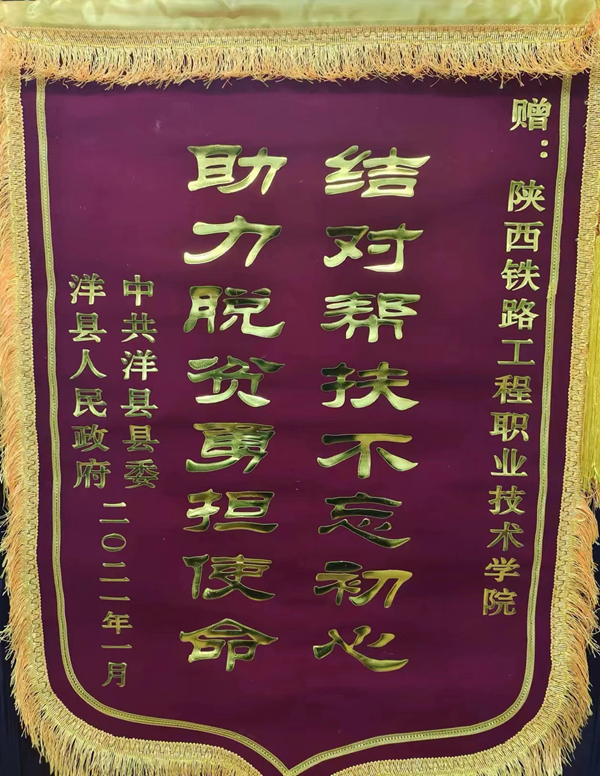 赠：陕西铁路工程职业技术学院
结对帮扶不忘初心
助力脱贫勇担使命
中共洋县县委
洋县人民政府
二〇二一年一月